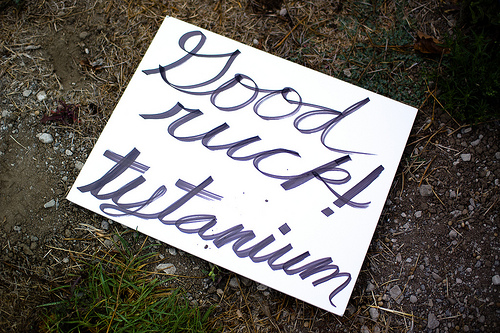 Good
ruck!
tystanium